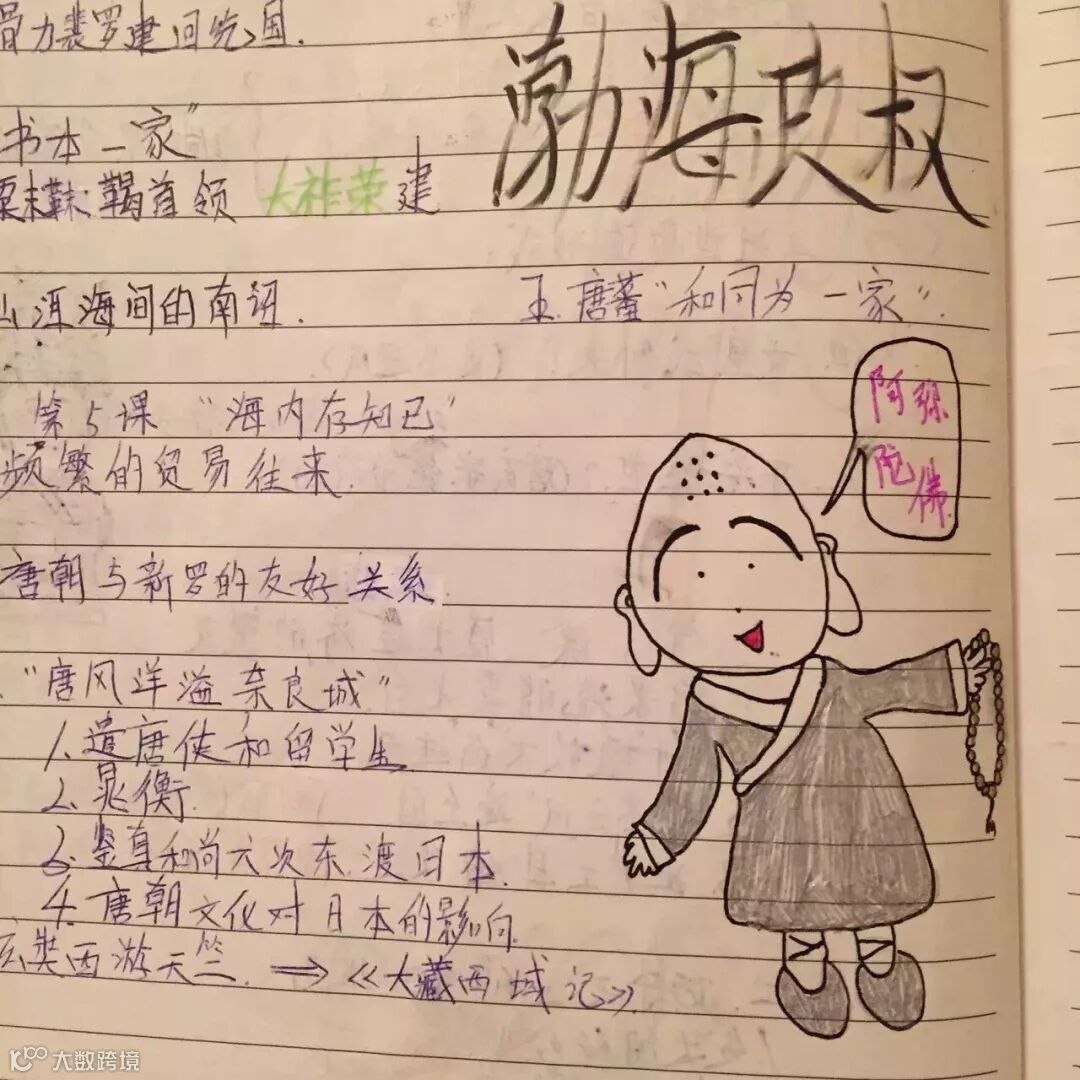 骨力裴罗建回纥国.
渤海政权
书本一家"
粟末靺鞨首领 大祚荣建
山洱海间的南诏.
五.唐蕃"和同为一家".
第5课 "海内存知己"
频繁的贸易往来.
阿弥
陀佛
唐朝与新罗的友好关系.
"唐风洋溢奈良城"
1.遣唐使和留学生
2.晁衡.
3.鉴真和尚六次东渡日本.
4.唐朝文化对日本的影响.
玄奘西游天竺. ⇒《大藏西域记》.
大数跨境